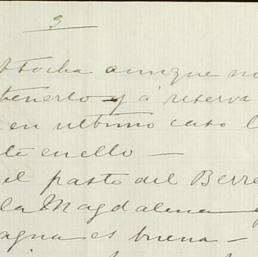 3
Atocha aunque no
tenerlo y á reserva
en ultimo caso l
te en ello —
el pasto del Berre
la Magdalena y
agua es buena —